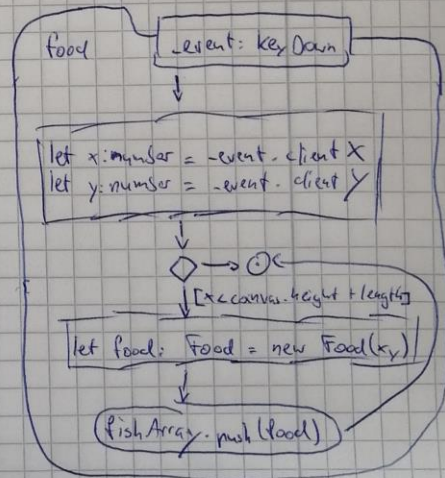 food
_event: keyDown
let x: number = _event.clientX
let y: number = _event.clientY
[x < canvas.height + length]
let food: Food = new Food(x,y)
fishArray.push(food)